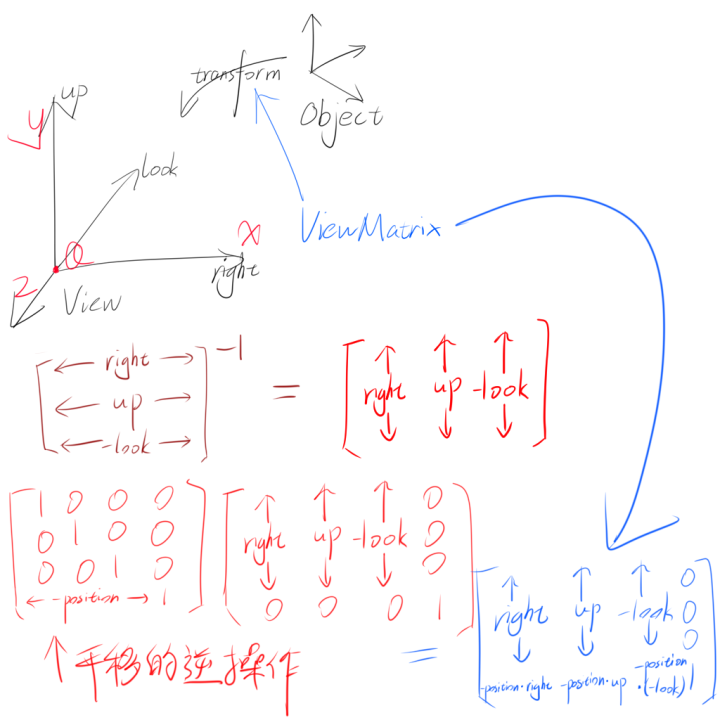 up
transform
y
Object
look
ViewMatrix
X
O
right
Z
View
right
-1
up
-look
=
right up -look
1 0 0 0
0 1 0 0
0 0 1 0
-position 1
right up -look 0
0
0
0 0 0 1
↑平移的逆操作
=
right up -look 0
0
0
-position·right -position·up -position·(-look) 1